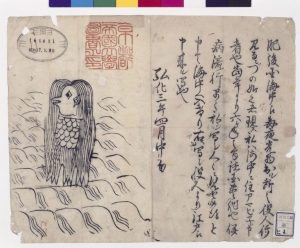 肥後国海中え毎夜光物出ル所之役人行
見るニづの如く者現ス私ハ海中ニ住アマビヱト申
者也当年より六ケ年之間諸国豊作也併
病流行早々私写シ人々ニ見せ候得と
申て海中へ入けり右ハ写シ役人より江戸え
申来ル写也
弘化三年四月中旬